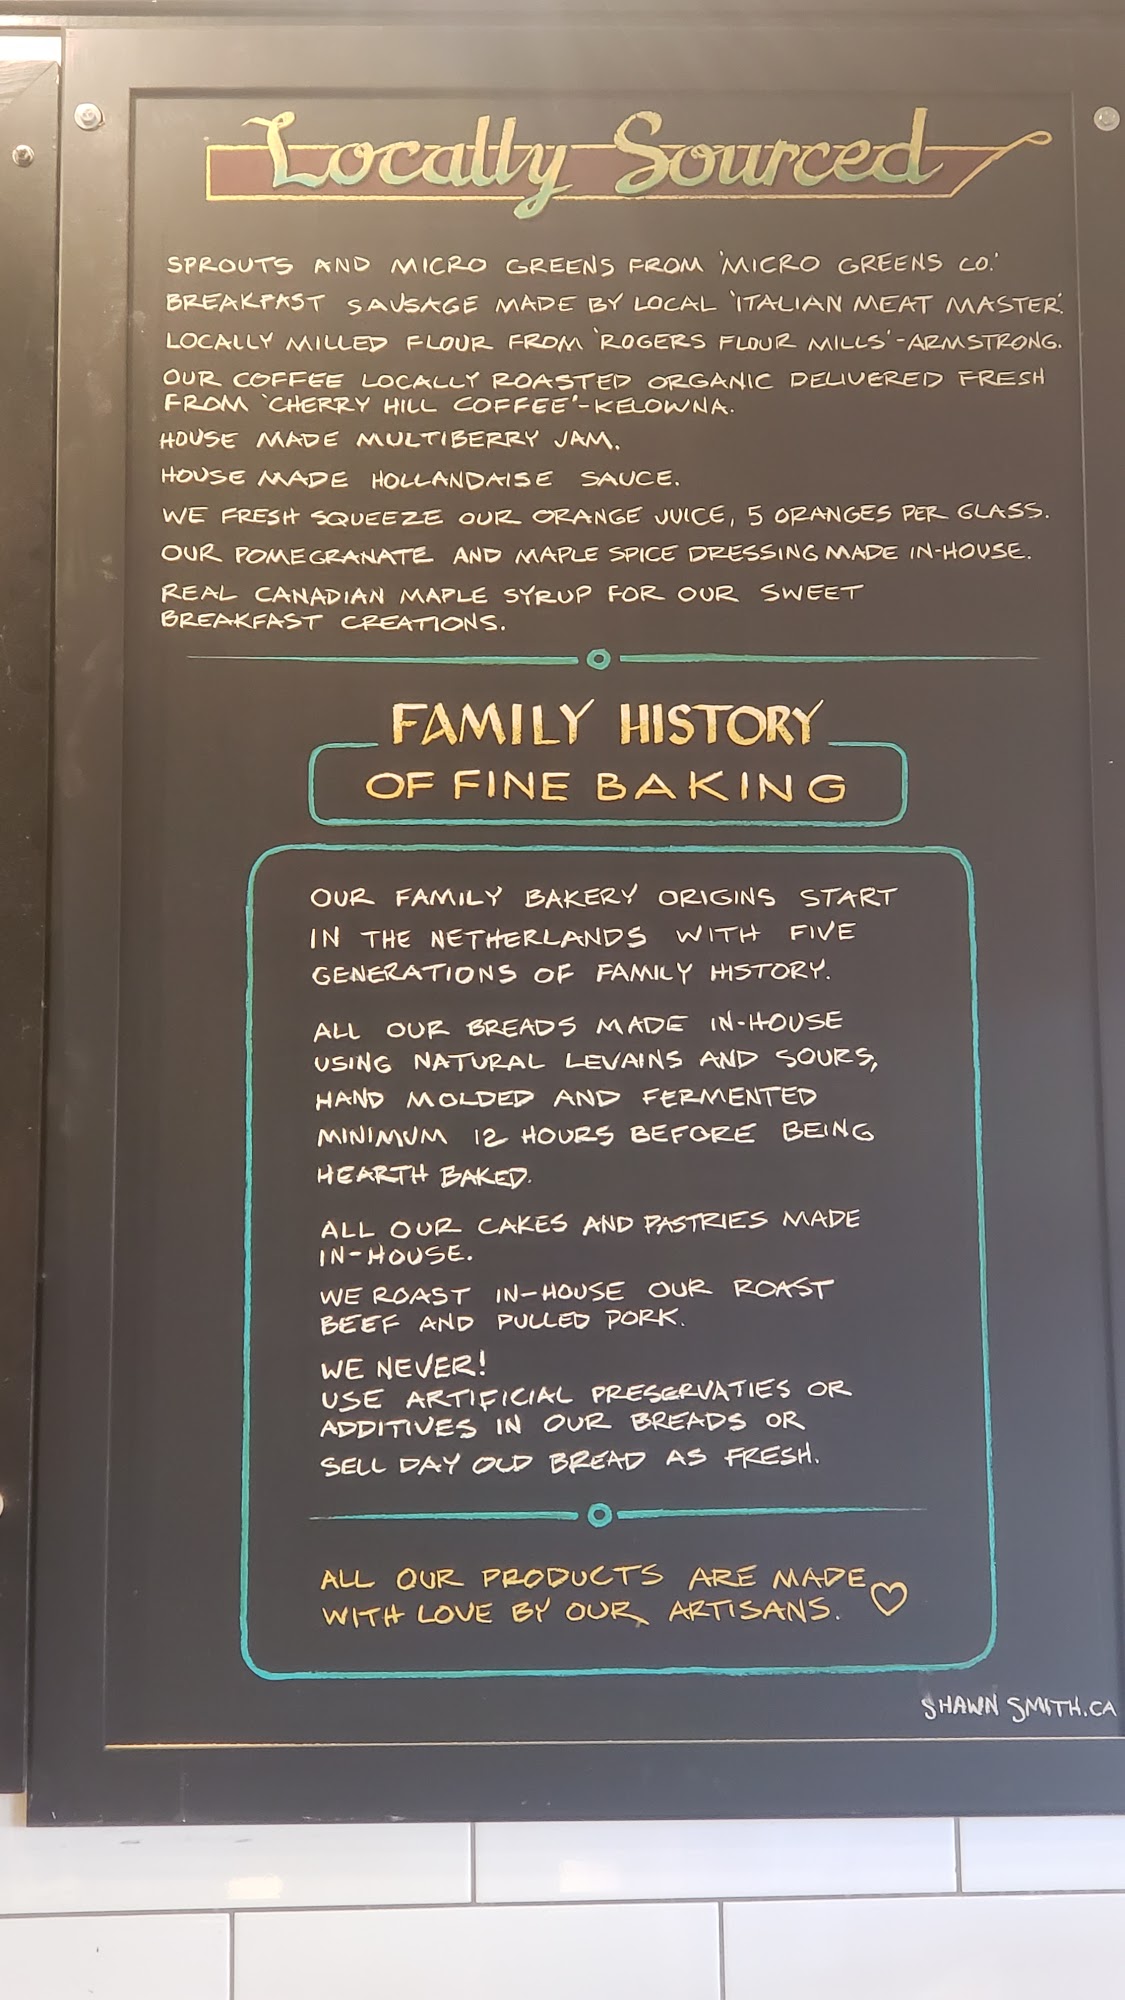 Locally Sourced
SPROUTS AND MICRO GREENS FROM 'MICRO GREENS CO.'
BREAKFAST SAUSAGE MADE BY LOCAL 'ITALIAN MEAT MASTER'.
LOCALLY MILLED FLOUR FROM 'ROGERS FLOUR MILLS'-ARMSTRONG.
OUR COFFEE LOCALLY ROASTED ORGANIC DELIVERED FRESH
FROM 'CHERRY HILL COFFEE'-KELOWNA.
HOUSE MADE MULTIBERRY JAM.
HOUSE MADE HOLLANDAISE SAUCE.
WE FRESH SQUEEZE OUR ORANGE JUICE, 5 ORANGES PER GLASS.
OUR POMEGRANATE AND MAPLE SPICE DRESSING MADE IN-HOUSE.
REAL CANADIAN MAPLE SYRUP FOR OUR SWEET
BREAKFAST CREATIONS.
FAMILY HISTORY
OF FINE BAKING
OUR FAMILY BAKERY ORIGINS START
IN THE NETHERLANDS WITH FIVE
GENERATIONS OF FAMILY HISTORY.
ALL OUR BREADS MADE IN-HOUSE
USING NATURAL LEVAINS AND SOURS,
HAND MOLDED AND FERMENTED
MINIMUM 12 HOURS BEFORE BEING
HEARTH BAKED.
ALL OUR CAKES AND PASTRIES MADE
IN-HOUSE.
WE ROAST IN-HOUSE OUR ROAST
BEEF AND PULLED PORK.
WE NEVER!
USE ARTIFICIAL PRESERVATIES OR
ADDITIVES IN OUR BREADS OR
SELL DAY OLD BREAD AS FRESH.
ALL OUR PRODUCTS ARE MADE
WITH LOVE BY OUR ARTISANS. ♡
SHAWN SMITH.CA